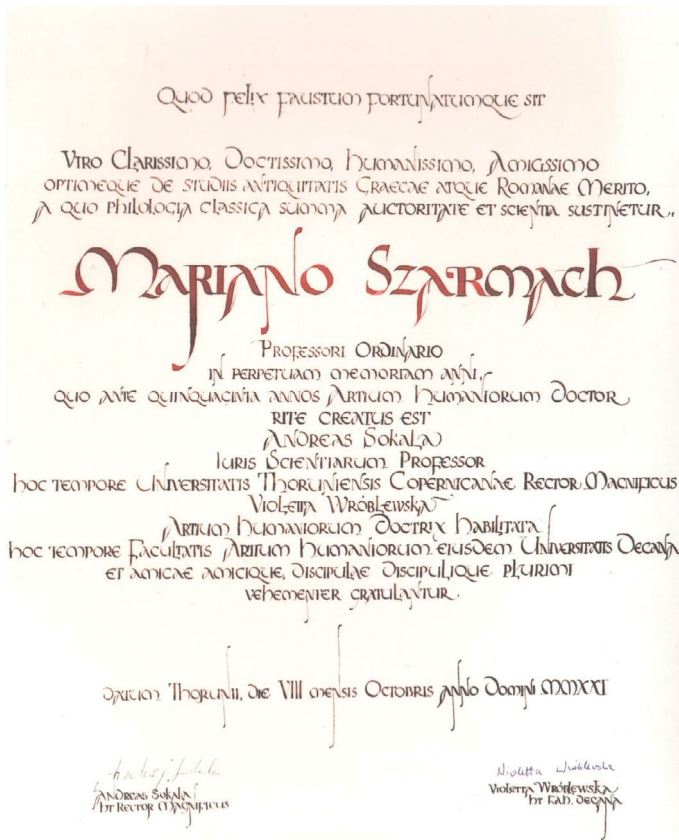 Quod felix faustum fortunatumque sit
Viro Clarissimo, Doctissimo, Humanissimo, Amicissimo
optimeque de studiis antiquitatis Graecae atque Romanae merito,
a quo philologia classica summa auctoritate et scientia sustinetur,
Mariano Szarmach
Professori Ordinario
in perpetuam memoriam anni,
quo ante quinquaginta annos Artium Humaniorum Doctor
rite creatus est
Andreas Sokala
Iuris Scientiarum Professor
hoc tempore Universitatis Thoruniensis Copernicanae Rector Magnificus
Violetta Wróblewska
Artium Humaniorum Doctrix Habilitata
hoc tempore Facultatis Artium Humaniorum eiusdem Universitatis Decana
et amicae amicique, discipulae discipulique plurimi
vehementer gratulantur.
Datum Thorunii, die VIII mensis Octobris Anno Domini MMXXI
Andrzej Sokala
Andreas Sokala
ht Rector Magnificus
Violetta Wróblewska
Violetta Wróblewska
ht Fah. Decana